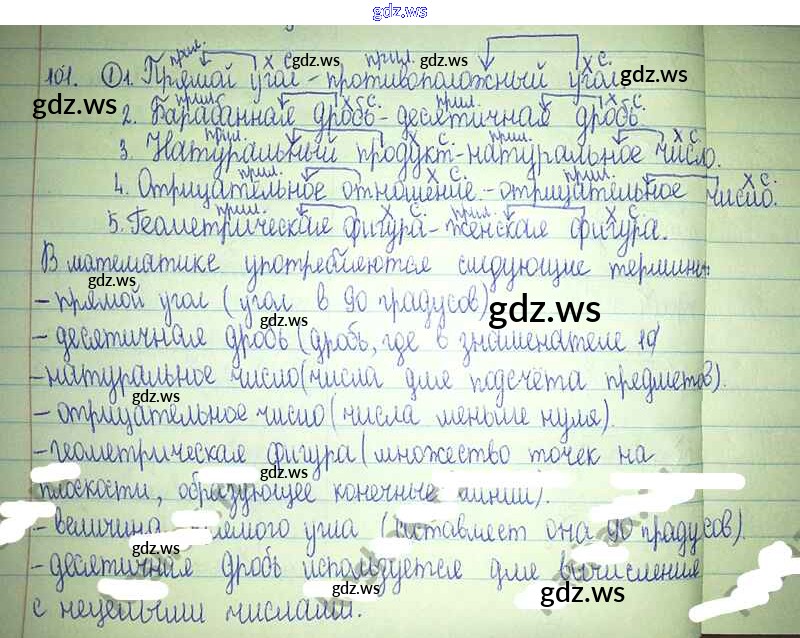 gdz.ws
прил. х с. gdz.ws прил. х с.
101. ① 1. Прямой угол - противоположный угол. gdz.ws
gdz.ws прил. х с. прил. х с.
2. Барабанная дробь - десятичная дробь.
прил. х с. прил. х с.
3. Натуральный продукт - натуральное число.
прил. х с. прил. х с.
4. Отрицательное отношение - отрицательное число.
прил. х с. прил. х с.
5. Геометрические фигура - женская фигура.
В математике употребляются следующие термины:
gdz.ws
- прямой угол (угол в 90 градусов)
gdz.ws gdz.ws
- десятичная дробь (дробь, где в знаменателе 10)
- натуральное число (числа для подсчёта предметов).
gdz.ws
- отрицательное число (числа меньше нуля).
- геометрическая фигура (множество точек на
gdz.ws
плоскости, образующее конечные линии).
- величина прямого угла (составляет она 90 градусов).
gdz.ws
- десятичная дробь используется для вычисления
gdz.ws gdz.ws
с нецелыми числами.